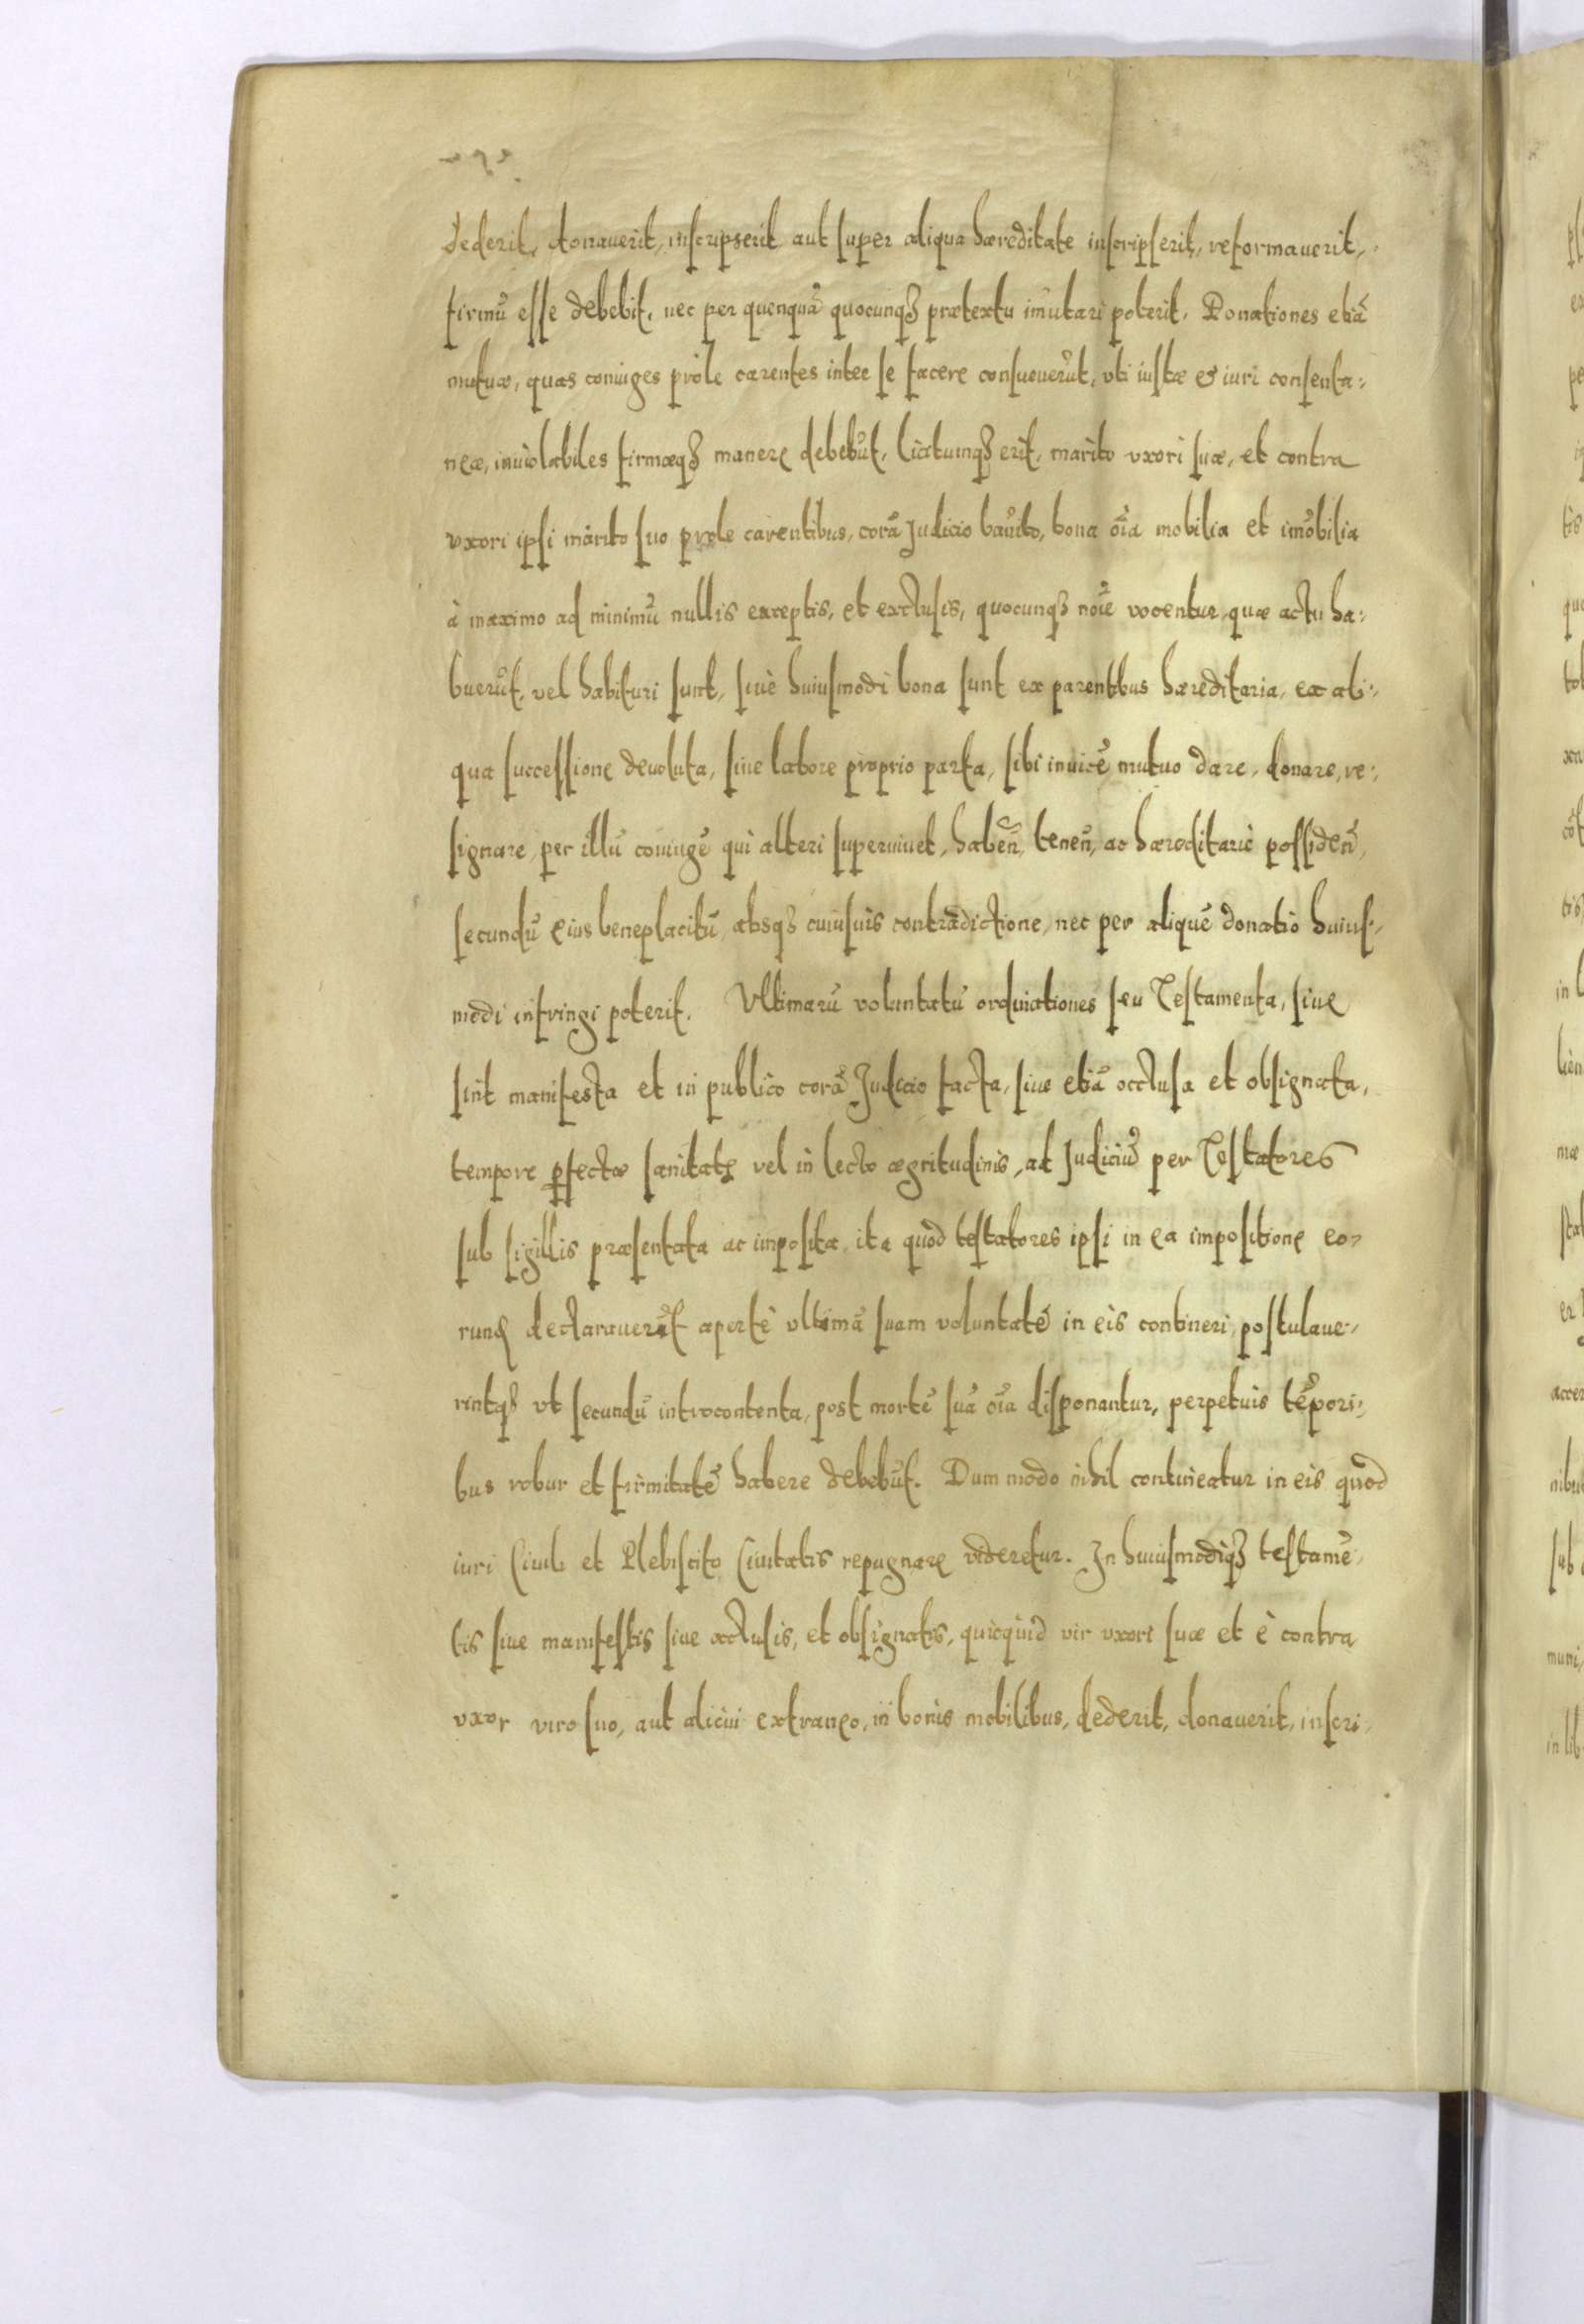 dederit, donauerit, inscripserit aut super aliqua hæreditate inscripserit, reformauerit,
firmũ esse debebit, nec per quenquã quocunqꝫ prætextu im̃utari poterit. Donationes etiã
mutuæ, quas coniuges prole carentes inter se facere consueuerũt, vti iustæ & iuri consenta⸗
neæ, inuiolabiles firmæqꝫ manere debebũt, licitumqꝫ erit, marito vxori suæ, et contra
vxori ipsi marito suo prole carentibus, corã Judicio bañito, bona oĩa mobilia et im̃obilia
à maximo ad minimũ nullis exceptis, et exclusis, quocunqꝫ noĩe vocentur, quæ actu ha⸗
buerũt, vel habituri sunt, siue huiusmodi bona sunt ex parentibus hæreditaria, ex ali⸗
qua successione deuoluta, siue labore proprio parta, sibi inuicẽ mutuo dare, donare, re⸗
signare, per illũ coniugẽ qui alteri superuiuet, habeñ, teneñ, ac hæreditariè possideñ,
secundũ eius beneplacitũ, absqꝫ cuiusuis contradictione, nec per aliquẽ donatio huius⸗
modi infringi poterit. Vltimarũ voluntatũ ordinationes seu Testamenta, siue
sint manifesta et in publico corã Judicio facta, siue etiã occlusa et obsignata,
tempore ꝑfectæ sanitatꝭ vel in lecto ægritudinis, ad Judiciũ per Testatores
sub sigillis præsentata ac imposita, ita quòd testatores ipsi in ea impositione eo⸗
rund declarauerĩt apertè vltimã suam voluntatẽ in eis contineri, postulaue⸗
rintqꝫ vt secundũ introcontenta, post mortẽ suã oĩa disponantur, perpetuis tẽpori⸗
bus robur et firmitatẽ habere debebũt. Dum modo nihil contineatur in eis quod
iuri Ciuili et Plebiscito Ciuitatis repugnare videretur. In huiusmodiqꝫ testamẽ⸗
tis siue manifestis siue occlusis, et obsignatis, quicquid vir vxori suæ et è contra
vxor viro suo, aut alicui extraneo, in bonis mobilibus, dederit, donauerit, inscri⸗